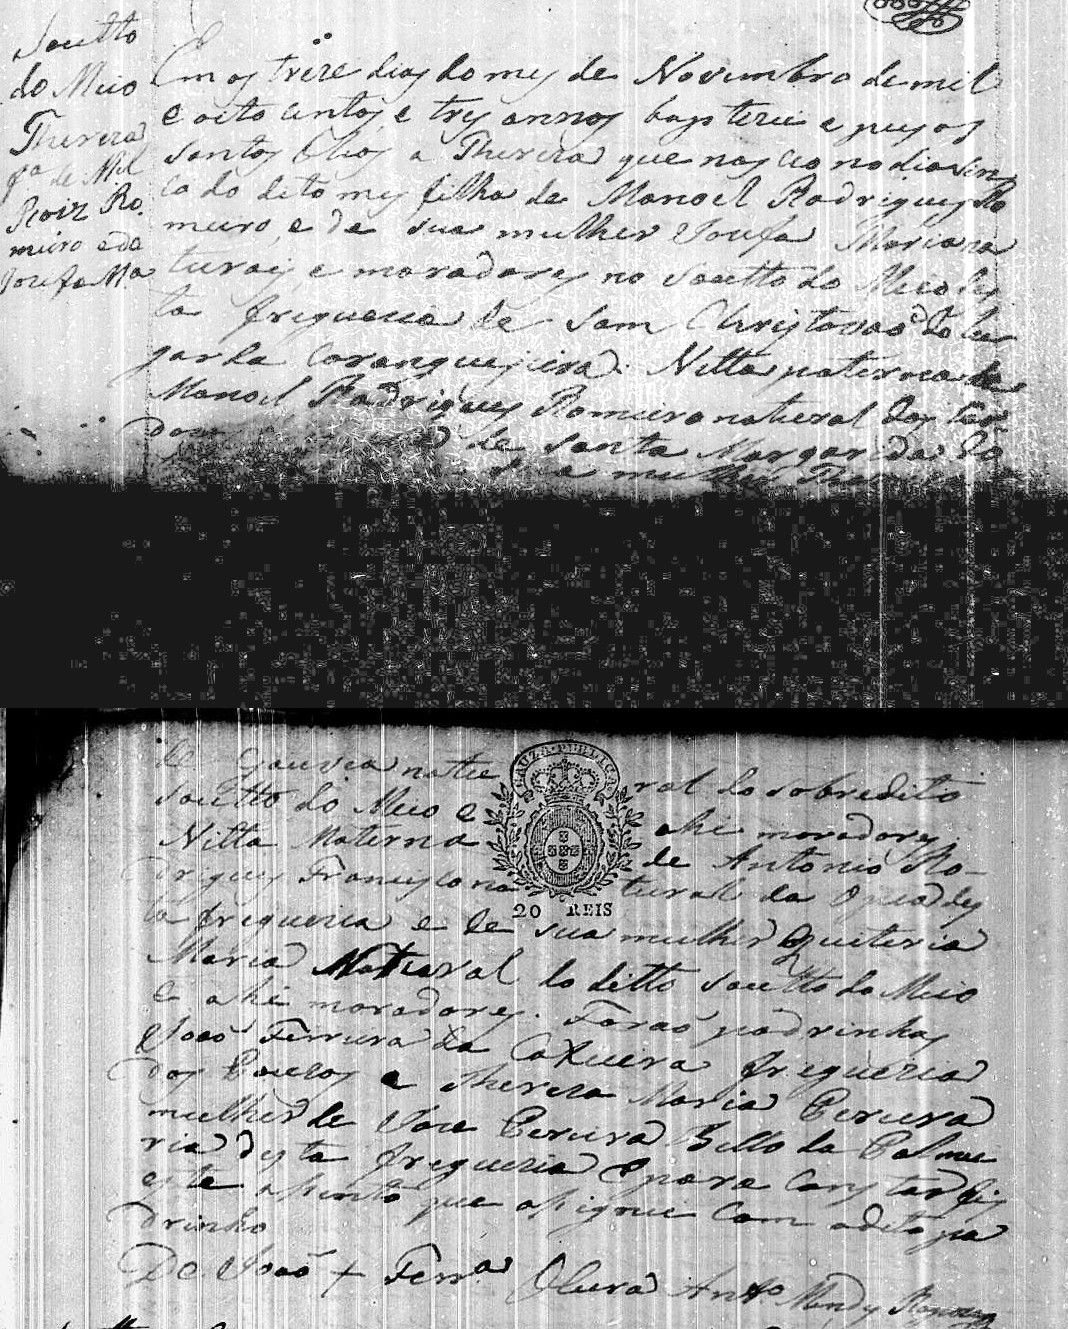 Soutto
do Meio
Thereza
fa de Mel
Roiz Ro.
meiro e de
Jozefa Ma
Em os treze dias do mes de Novembro de mil
e oito centos e tres annos baptezei e puz os
santos Olios a Thereza que nasceo no dia sin
co do dito mes filha de Manoel Rodrigues Ro
meiro, e de sua mulher Jozefa Maria na
turais e moradores no Soutto do Meio des
ta freguezia de Sam Christovaõ do lu
gar da Caranguejeira. Netta paterna de
Manoel Rodrigues Romeiro natural dos
de Santa Margarida do
sua mulher
de Gouvia natu ral do sobredito
Soutto do Meio e ahi moradores
Netta Materna de Antonio Ro-
drigues Francisco na tural da des
ta freguezia e de sua mulher Quiteria
Maria Natural do ditto Soutto do Meio
e ahi moradores. Foraõ padrinhos
Joaõ Ferreira da Caxieira freguezia
dos Pouzos e Thereza Maria Pereira
mulher de Joze Pereira Bello da Palmei
ria desta freguezia e para constar fis
este assento que asignei com o dito pa
drinho
De Joaõ + Ferra O Cura Anto Mendes
CAUZA PUBLICA
20 REIS